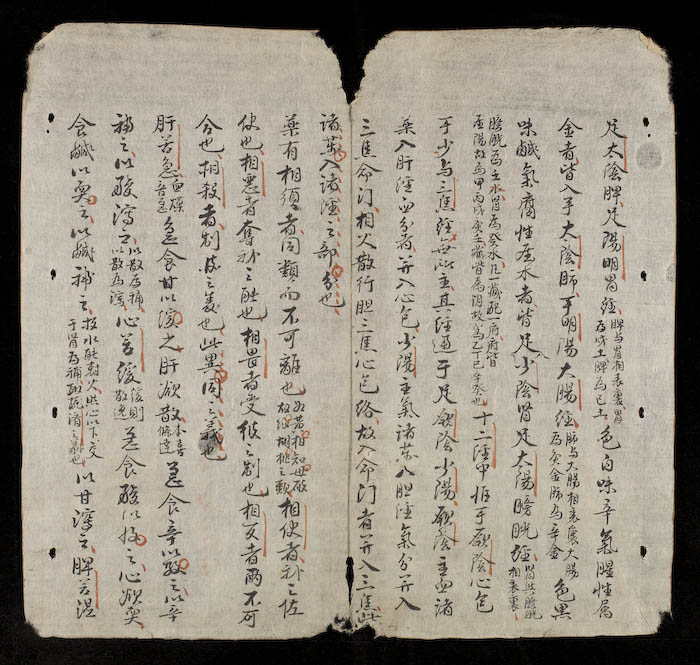 足太陰脾足陽明胃經脾与胃相表裏胃為戊土脾為己土色白味辛氣腥性属
金者皆入手太陰肺手明陽大腸經肺与大腸相表裏大腸為庚金肺為辛金色黑
味鹹氣腐性属水者皆足少陰腎足太陽膀胱經腎與膀胱相表裏
膀胱為壬水腎為癸水凡一藏配一府府皆属陽故為甲丙戊庚壬藏皆属陰故為乙丁己辛癸也十二經中惟手厥陰心包
手少与三焦經無所主其經通于足厥陰少陽厥陰主血諸
藥入肝經血分者并入心包少陽主氣諸藥入胆經氣分并入
三焦命门相火散行胆三焦心包络故入命门者并入三焦此
諸藥入諸經之部分也
藥有相須者同類而不可離也如黄柏知母破故纸胡桃之類相使者补之佐
使也相惡者奪补之能也相畏者受彼之制也相反者兩不可
合也相殺者制彼之毒也此異同之義也
肝苦急血燥苦急急食甘以缓之肝欲散木喜條達急食辛以散之以辛
補之以酸瀉之以散為補以斂為瀉心苦缓缓則散逸急食酸以收之心欲耎
食鹹以耎之以鹹補之按水能剋火然心以下交于腎為補取既濟之義也以甘瀉之脾苦湿